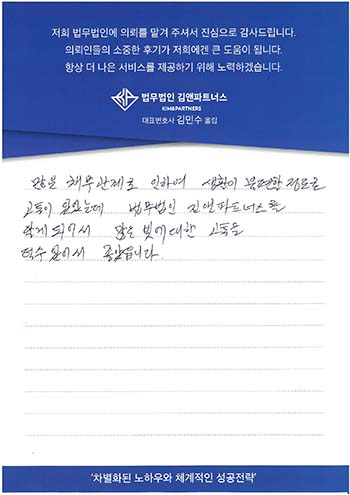 저희 법무법인에 의뢰를 맡겨 주셔서 진심으로 감사드립니다.
의뢰인들의 소중한 후기가 저희에겐 큰 도움이 됩니다.
항상 더 나은 서비스를 제공하기 위해 노력하겠습니다.
법무법인 김앤파트너스
KIM&PARTNERS
대표변호사 김민수 올림
많은 채무관계로 인하여 생활이 불편할 정도로
고통이 있었는데 법무법인 김앤파트너스를
알게 되어서 많은 빚에 대한 고통을
덜수 있어서 좋았습니다.
'차별화된 노하우와 체계적인 성공전략'